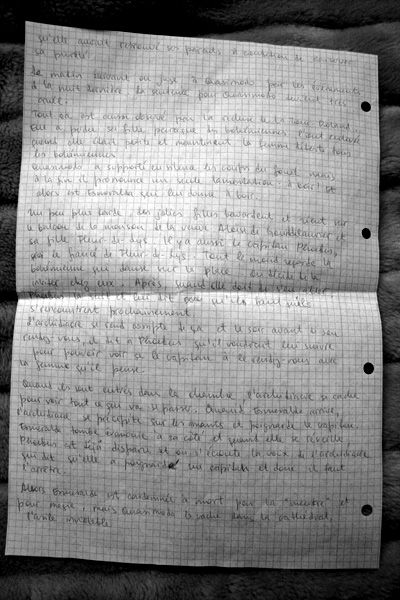 qu'elle aurait retrouvé ses parents à condition de conserver
sa pureté.
Le matin suivant on juge à Quasimodo pour les événements
de la nuit dernière. La sentence pour Quasimodo est très
Tout ça est aussi observé par la recluse de la Tour Roland
qui a perdu sa fille parce que les bohémiennes l'ont
quand elle était petite et maintenant la femme déteste tous
les bohémiennes.
Quasimodo a supporté en silence les coups du fouet mais
à la fin il prononce une seule lamentation: "à boire!" Et
alors est Esmeralda qui lui donne à boire.
Un peu plus tarde, des jolies filles bavardent et rient sur
le balcon de la maison de la veuve Aloïse de Gondelaurier et
sa fille Fleur-de-Lys. Il y a aussi le capitan Phoebus,
le fiancé de Fleur-de-Lys. Tout le mond regarde la
bohémienne qui danse sur la place. On décide de la
inviter chez eux. Après, quand elle doit de s'en aller,
Phoebus la suit et leur dit pour qu'ils
s'rencontrent prochainement.
L'archidiacre se rend compte de ça et le soir avant de son
rendez-vous, il dit à Phoebus qu'il voudrait en suivre
pour pouvoir voir si le capitan a le rendez-vous avec
la femme qu'il pense.
Quand ils sont entrés dans la chambre, l'archidiacre se cache
pour voir tout ce qui va se passer. Quand Esmeralda arrive,
l'archidiacre se précipite sur les amants et poignarde le capitan.
Esmeralda tombe évanouie à sa côté et quand elle se réveille
Phoebus est déjà disparu et on écoute la voix de l'archidiacre
qui dit qu'elle a poignardé un capitan et donc il faut
l'arrêter.
Alors Esmeralda est condamnée à mort pour la "meurtre" et
pour magie, mais Quasimodo la cache dans la cathédral,
l'asile inviolable.